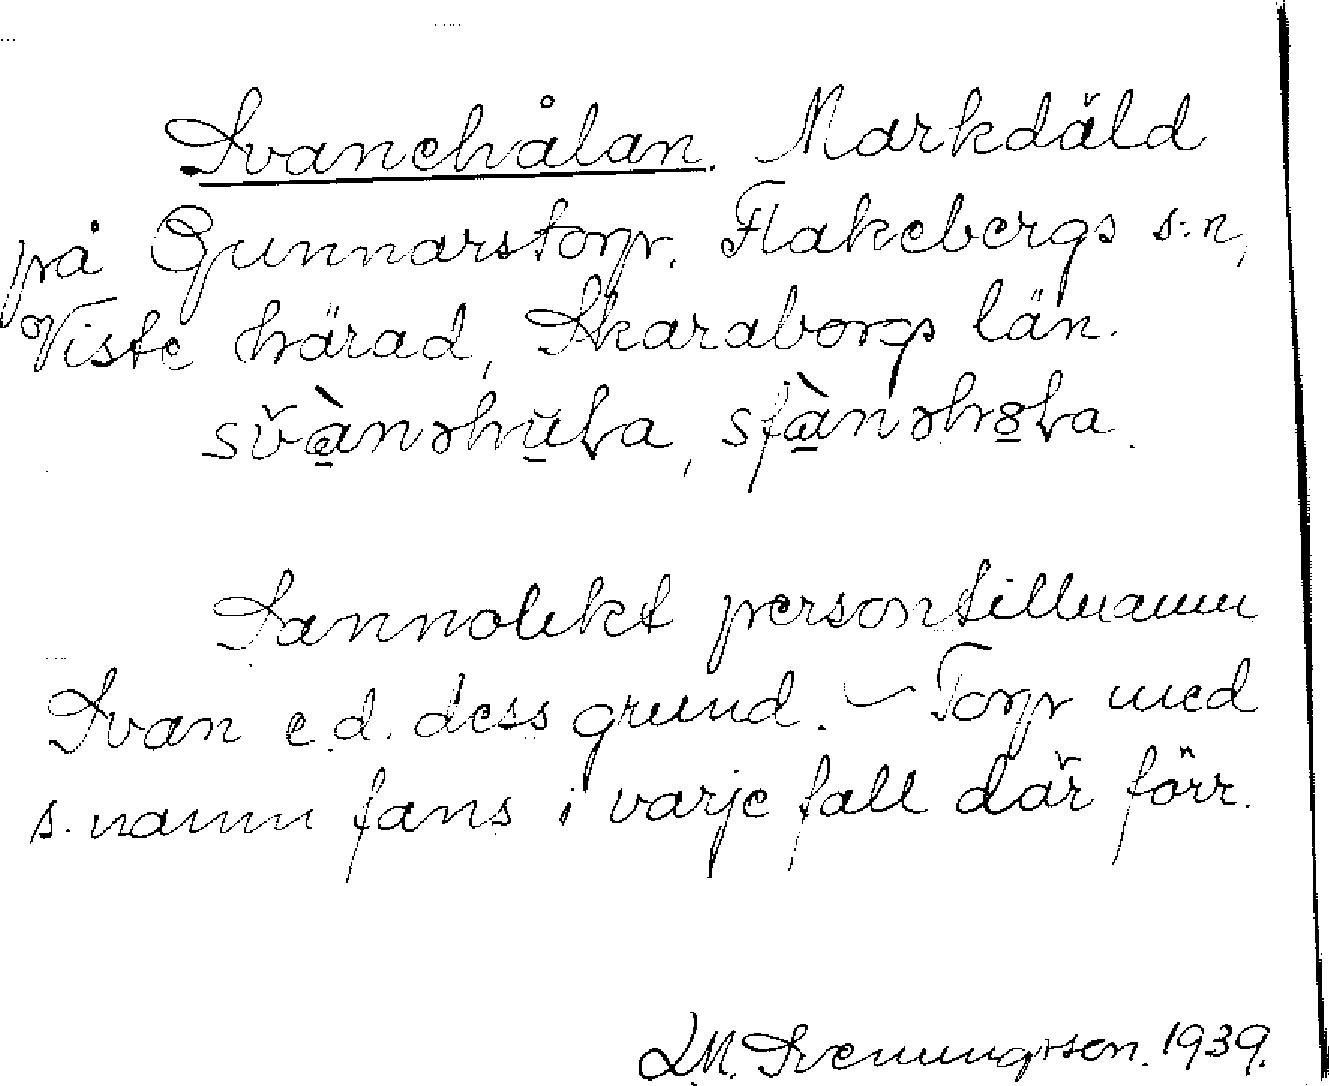 Svanehålan. Markdäld
på Gunnarstorp. Flakebergs s:n,
Viste härad, Skaraborgs län.
Sannolikt persontillnamn
Svan e.d. dess grund. – Torp med
s. namn fans i varje fall där förr.
L.M. Svenungsson. 1939.